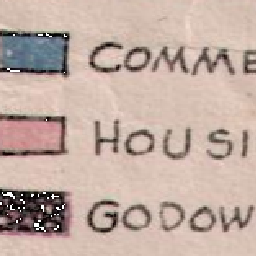 COMME
HOUSI
GODOW